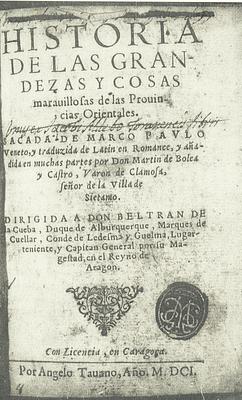 HISTORIA
DE LAS GRAN-
DEZAS Y COSAS
marauillosas de las Prouin-
cias Orientales.
SACADA DE MARCO PAVLO
Veneto, y traduzida de Latin en Romance, y aña-
dida en muchas partes por Don Martin de Bolea
y Castro, Varon de Clamosa,
señor de la Villa de
Sietamo.
DIRIGIDA A DON BELTRAN DE
la Cueba, Duque de Alburquerque, Marques de
Cuellar, Conde de Ledesma y Guelma, Lugar-
teniente, y Capitan General por su Ma-
gestad, en el Reyno de
Aragon.
Con Licencia, en Caragoça.
Por Angelo Tauano, Año. M. DCI.